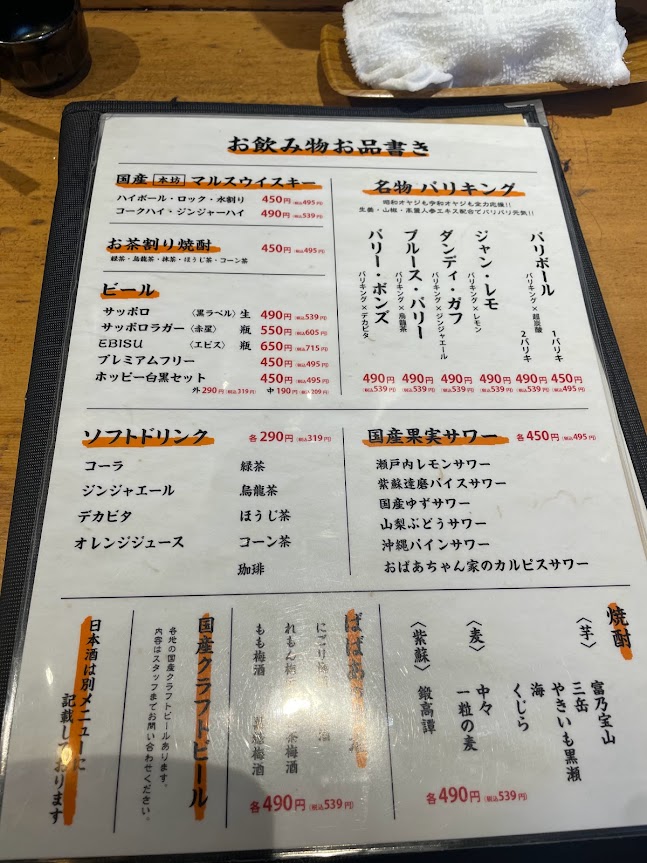 お飲み物お品書き
国産 本坊 マルスウイスキー
ハイボール・ロック・水割り 450円(税込495円)
コークハイ・ジンジャーハイ 490円(税込539円)
お茶割り焼酎 450円(税込495円)
緑茶・烏龍茶・抹茶・ほうじ茶・コーン茶
ビール
サッポロ 〈黒ラベル〉生 490円(税込539円)
サッポロラガー〈赤星〉 瓶 550円(税込605円)
EBISU 〈エビス〉 瓶 650円(税込715円)
プレミアムフリー 450円(税込495円)
ホッピー白黒セット 450円(税込495円)
外290円(税込319円) 中190円(税込209円)
名物 バリキング
昭和オヤジも令和オヤジも全力応援!!
生姜・山椒・高麗人参エキス配合でバリバリ元気!!
バリボール
バリキング×超炭酸
1バリキ
2バリキ
ジャン・レモ
バリキング×レモン
ダンディ・ガフ
バリキング×ジンジャエール
ブルース・バリー
バリキング×烏龍茶
バリー・ボンズ
バリキング×デカビタ
490円 490円 490円 490円 490円 450円
(税込539円) (税込539円) (税込539円) (税込539円) (税込539円) (税込495円)
ソフトドリンク 各290円(税込319円)
コーラ
ジンジャエール
デカビタ
オレンジジュース
緑茶
烏龍茶
ほうじ茶
コーン茶
珈琲
国産果実サワー 各450円(税込495円)
瀬戸内レモンサワー
紫蘇達磨バイスサワー
国産ゆずサワー
山梨ぶどうサワー
沖縄パインサワー
おばあちゃん家のカルピスサワー
焼酎
〈芋〉
富乃宝山
三岳
やきいも黒瀬
海
くじら
〈麦〉
中々
一粒の麦
〈紫蘇〉
鍛高譚
各490円(税込539円)
ばばあ
にごり梅酒
れもん梅
茶梅酒
もも梅酒
梅酒
各490円(税込539円)
国産クラフトビール
各地の国産クラフトビールあります。
内容はスタッフまでお問い合わせください。
日本酒は別メニューに
記載しております